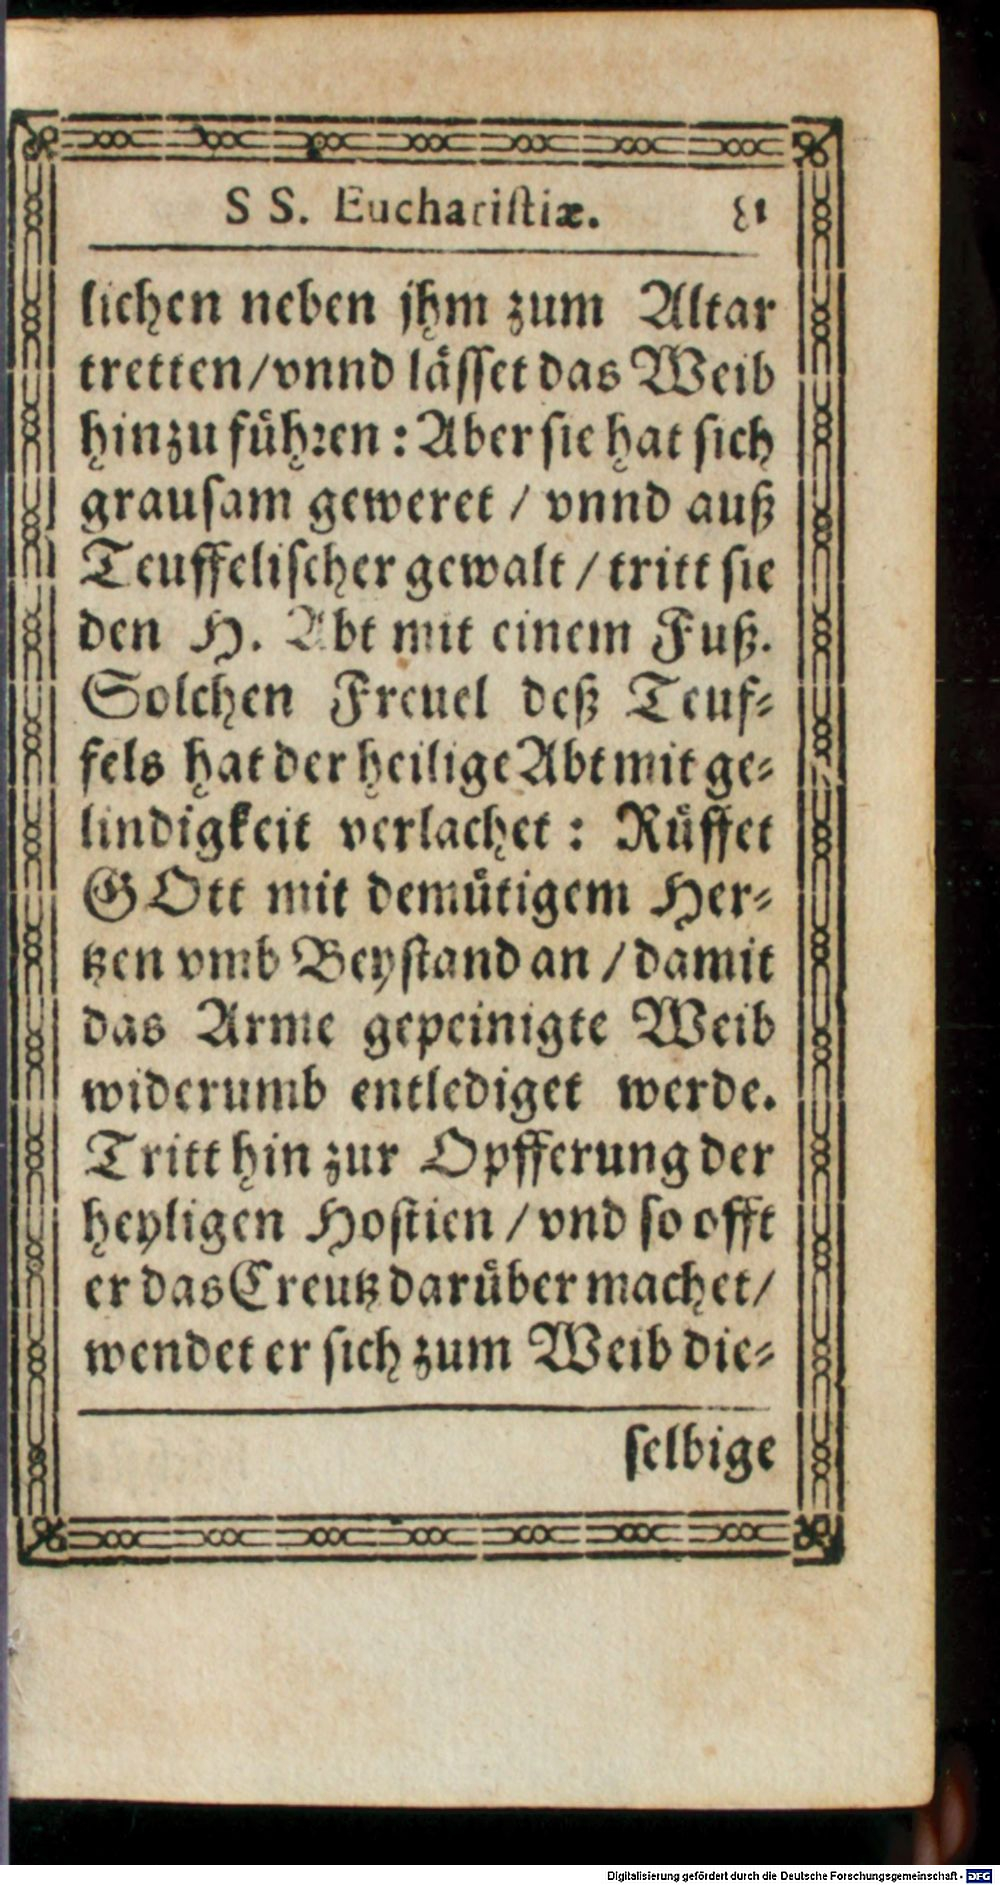 SS. Euchariſtiæ. 81
lichen neben jhm zum Altar
tretten/vnnd läſſet das Weib
hinzu führen: Aber ſie hat ſich
grauſam geweret / vnnd auß
Teuffeliſcher gewalt / tritt ſie
den H. Abt mit einem Fuß.
Solchen Freuel deß Teuf⸗
fels hat der heilige Abt mit ge⸗
lindigkeit verlachet: Rüffet
GOtt mit demütigem Her⸗
tzen vmb Beyſtand an / damit
das Arme gepeinigte Weib
widerumb entlediget werde.
Tritt hin zur Opfferung der
heyligen Hoſtien / vnd ſo offt
er das Creutz darüber machet/
wendet er ſich zum Weib die⸗
ſelbige
Digitalisierung gefördert durch die Deutsche Forschungsgemeinschaft - DFG